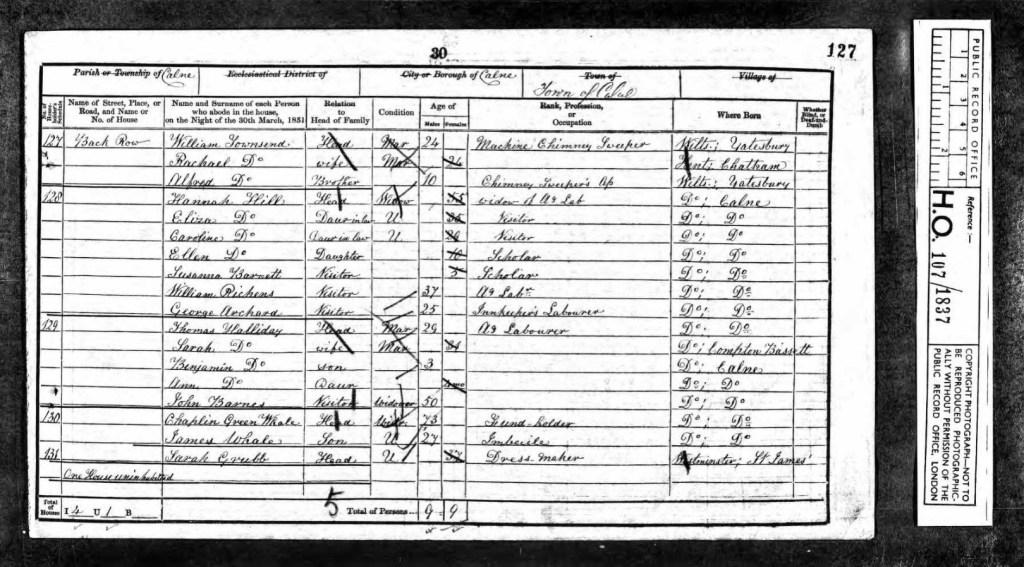 30
127
Parish or Township of Calne Ecclesiastical District of City or Borough of Calne Town of Village of
Town of
No. of House-holder's Schedule Name of Street, Place, or Road, and Name or No. of House Name and Surname of each Person who abode in the house, on the Night of the 30th March, 1851 Relation to Head of Family Condition Age of Males Females Rank, Profession, or Occupation Where Born Whether Blind, or Deaf-and-Dumb
127 Back Row William Townsend Head Mar 24 Machine Chimney Sweeper Wilts; Yatesbury
Rachael Do wife Mar 24 Chatham
Alfred Do Brother 10 Chimney Sweeper's Ap Wilts; Yatesbury
128 Hannah Hill Head Widow 55 widow of Ag Lab Do; Calne
Eliza Do Daur in law U Visitor Do; Do
Caroline Do Daur in law U Visitor Do; Do
Ellen Do Daughter 10 Scholar Do; Do
Susanna Barnett Visitor 5 Scholar Do; Do
William Pickens Visitor 37 Ag Labr Do; Do
George Archard Visitor 25 Innkeeper's Labourer Do; Do
129 Thomas Halliday Head Mar 29 Ag Labourer Do Do
Sarah Do wife Mar 31 Do; Compton Bassett
Benjamin Do son 3 Do; Calne
Ann Do Daur Do; Do
John Barnes Visitor Widower 50 Do; Do
130 Chaplin Green Whale Head 73 Fund-holder Do; Do
James Whale Son U 27 Imbecile Do; Do
131 Sarah Grubb Head U 57 Dress-maker Westminster; St James'
One House uninhabited
Total of Houses I 4 U 1 B 5 Total of Persons 9 9
PUBLIC RECORD OFFICE
1 2 3 4 5 6
Reference:-
H.O. 107/1837
COPYRIGHT PHOTOGRAPH—NOT TO
BE REPRODUCED PHOTOGRAPHIC-
ALLY WITHOUT PERMISSION OF THE
PUBLIC RECORD OFFICE, LONDON